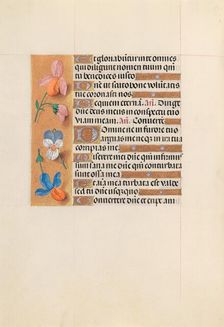 Et gloriabuntur in te omnes
qui diligunt nomen tuum qm
tu benedices iusto
Dne ut scuto bone volun
tuc coronasti nos
Requiem eternā. Añ. Dirige
dne deus meus in conspectu tuo
viam meam. Añ. Convertē
Domine ne in furore tuo
arguas me neq in ira tua
corripias me
Miserere mei dne qm infirmus
sum sana me dne qm conturbata
sunt ossa mea
Et aīa mea turbata est valde
sed tu dne usquequo
Convertere dne et eripe aīam